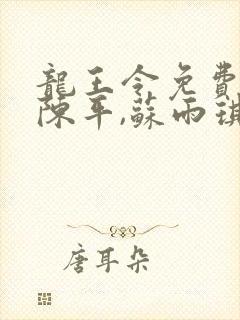 龍王令免費
陳平,蘇雨琪
唐耳朵